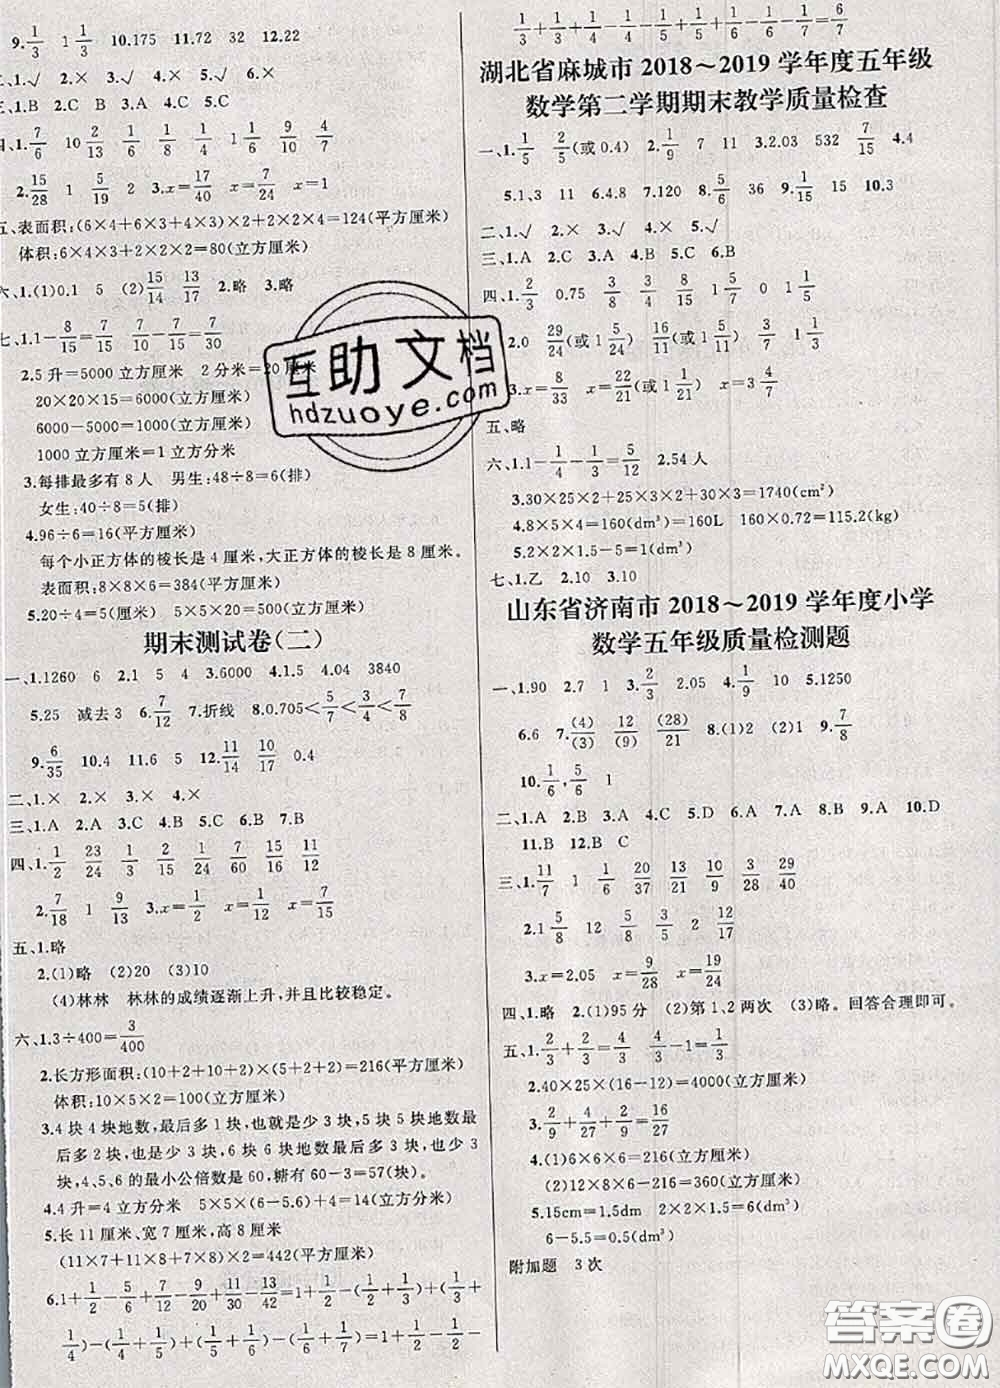 9.1/3 1 1/3 10.175 11.72 32 12.22
二、1.√ 2.× 3.× 4.√ 5.√ 6.×
三、1.B 2.C 3.A 4.B 5.C
四、1.7/6 10 2/13 9/10 1/6 1 1/6 9/10 4/7
2.15/28 1 5/19 2 3.x=17/40 x=7/24 x=1
五、表面积:(6×4+6×3+4×3)×2+2×2×4=124(平方厘米)
体积:6×4×3+2×2×2=80(立方厘米)
六、1.(1)0.1 5 (2)15/14 13/17 2.略 3.略
七、1.1-8/15=7/15 7/15-7/30=7/30
2.5升=5000立方厘米 2分米=20厘米
20×20×15=6000(立方厘米)
6000-5000=1000(立方厘米)
1000立方厘米=1立方分米
3.每排最多有8人 男生:48÷8=6(排)
女生:40÷8=5(排)
4.96÷6=16(平方厘米)
每个小正方体的棱长是4厘米,大正方体的棱长是8厘米。
表面积:8×8×6=384(平方厘米)
5.20÷4=5(厘米) 5×5×20=500(立方厘米)
期末测试卷(二)
一、1.1260 6 2.1 5 4 3.6000 4.1.5 4.04 3840
5.25 减去3 6.7/12 7.折线 8.0.705<5/7<3/4<7/8
9.6/35 10.4 11.6 5 12.11/14 10/17 0.4
二、1.× 2.× 3.× 4.×
三、1.A 2.A 3.C 4.B 5.C 6.B 7.B
四、1.1/2 23/24 1/3 2/15 1/24 7/60 15/16 11/12
2.7/18 1 9/13 3.x=1/2 x=1/12 x=7/15
五、1.略
2.(1)略 (2)20 (3)10
(4)林林 林林的成绩逐渐上升,并且比较稳定。
六、1.3÷400=3/400
2.长方形面积:(10+2+10+2)×(5+2+2)=216(平方厘米)
体积:10×5×2=100(立方厘米)
3.4块4块地数,最后多1块,也就是少3块,5块5块地数最
后多2块,也是少3块,6块6块地数最后多3块,也是少3
块,4、5、6的最小公倍数是60,糖有60-3=57(块)。
4.4升=4立方分米 5×5×(6-5.6)+4=14(立方分米)
5.长11厘米、宽7厘米、高8厘米
(11×7+11×8+7×8)×2=442(平方厘米)
6.1+1/2-5/6+7/12-9/20+11/30-13/42=1+1/2-(1/2+1/3)+(1/3+
1/4)-(1/4+1/5)+(1/5+1/6)-(1/6+1/7)=1+1/2-1/2-
1/3+1/3+1/4-1/4-1/5+1/5+1/6-1/6-1/7=1-1/7=6/7
湖北省麻城市2018~2019学年度五年级
数学第二学期期末教学质量检查
一、1.1/5 2/5(或0.4) 2.1/9 7 11 3.2.03 532 7/15 4.4
5.1、3 11 6.4.8 7.120 8.5/6 36 9.1/15 15 10.3
二、1.√ 2.× 3.√ 4.× 5.√
三、1.A 2.C 3.A 4.B 5.C 6.B
四、1.2/3 0.75 3/8 3/4 1 1/7 0 1 5/9
2.0 29/24(或1 5/24) 16/11(或1 5/11) 7/12 1 3/7
3.x=8/33 x=22/21(或1 1/21) x=3 4/7
五、略
六、1.1-1/4-1/3=5/12 2.54人
3.30×25×2+24×5×2=1740(cm²)
4.8×5×4=160(dm³)=160L 160×0.72=115.2(kg)
5.2×2×1.5-5=1(dm³)
七、1.乙 2.10 3.10
山东省济南市2018~2019学年度小学
数学五年级质量检测题
一、1.90 2.7 1 3.2/3 2.05 4.1/9 10 5.1250
6.6 7.(4)/(3) 12/(9) (28)/21 8.(1)2 (2)1 9.7/8
10.1/6、5/6 1
二、1.A 2.B 3.B 4.C 5.D 6.A 7.A 8.B 9.C 10.D
11.B 12.B C
三、1.11/7 1 1/6 20/37 13/21 10/9 3/28 29/40
2.1 5/8 12 5/8 3/5 2 9/12
3.x=2.05 x=9/28 x=19/24
四、1.略 2.(1)95分 (2)第1、2两次 (3)略。回答合理即可。
五、1.2/3+2/3=4/3 4/3-1=1/3
2.40×25×(16-12)=4000(立方厘米)
3.2/9+4/27+2/9=16/27
4.(1)6×6×6=216(立方厘米)
(2)12×8×6-216=360(立方厘米)
5.15cm=1.5dm 2×2×1.5=6(dm³)
6-5.5=0.5(dm³)
附加题 3次
互助文档
hdzuoye.com
答案圈
MXQE.COM